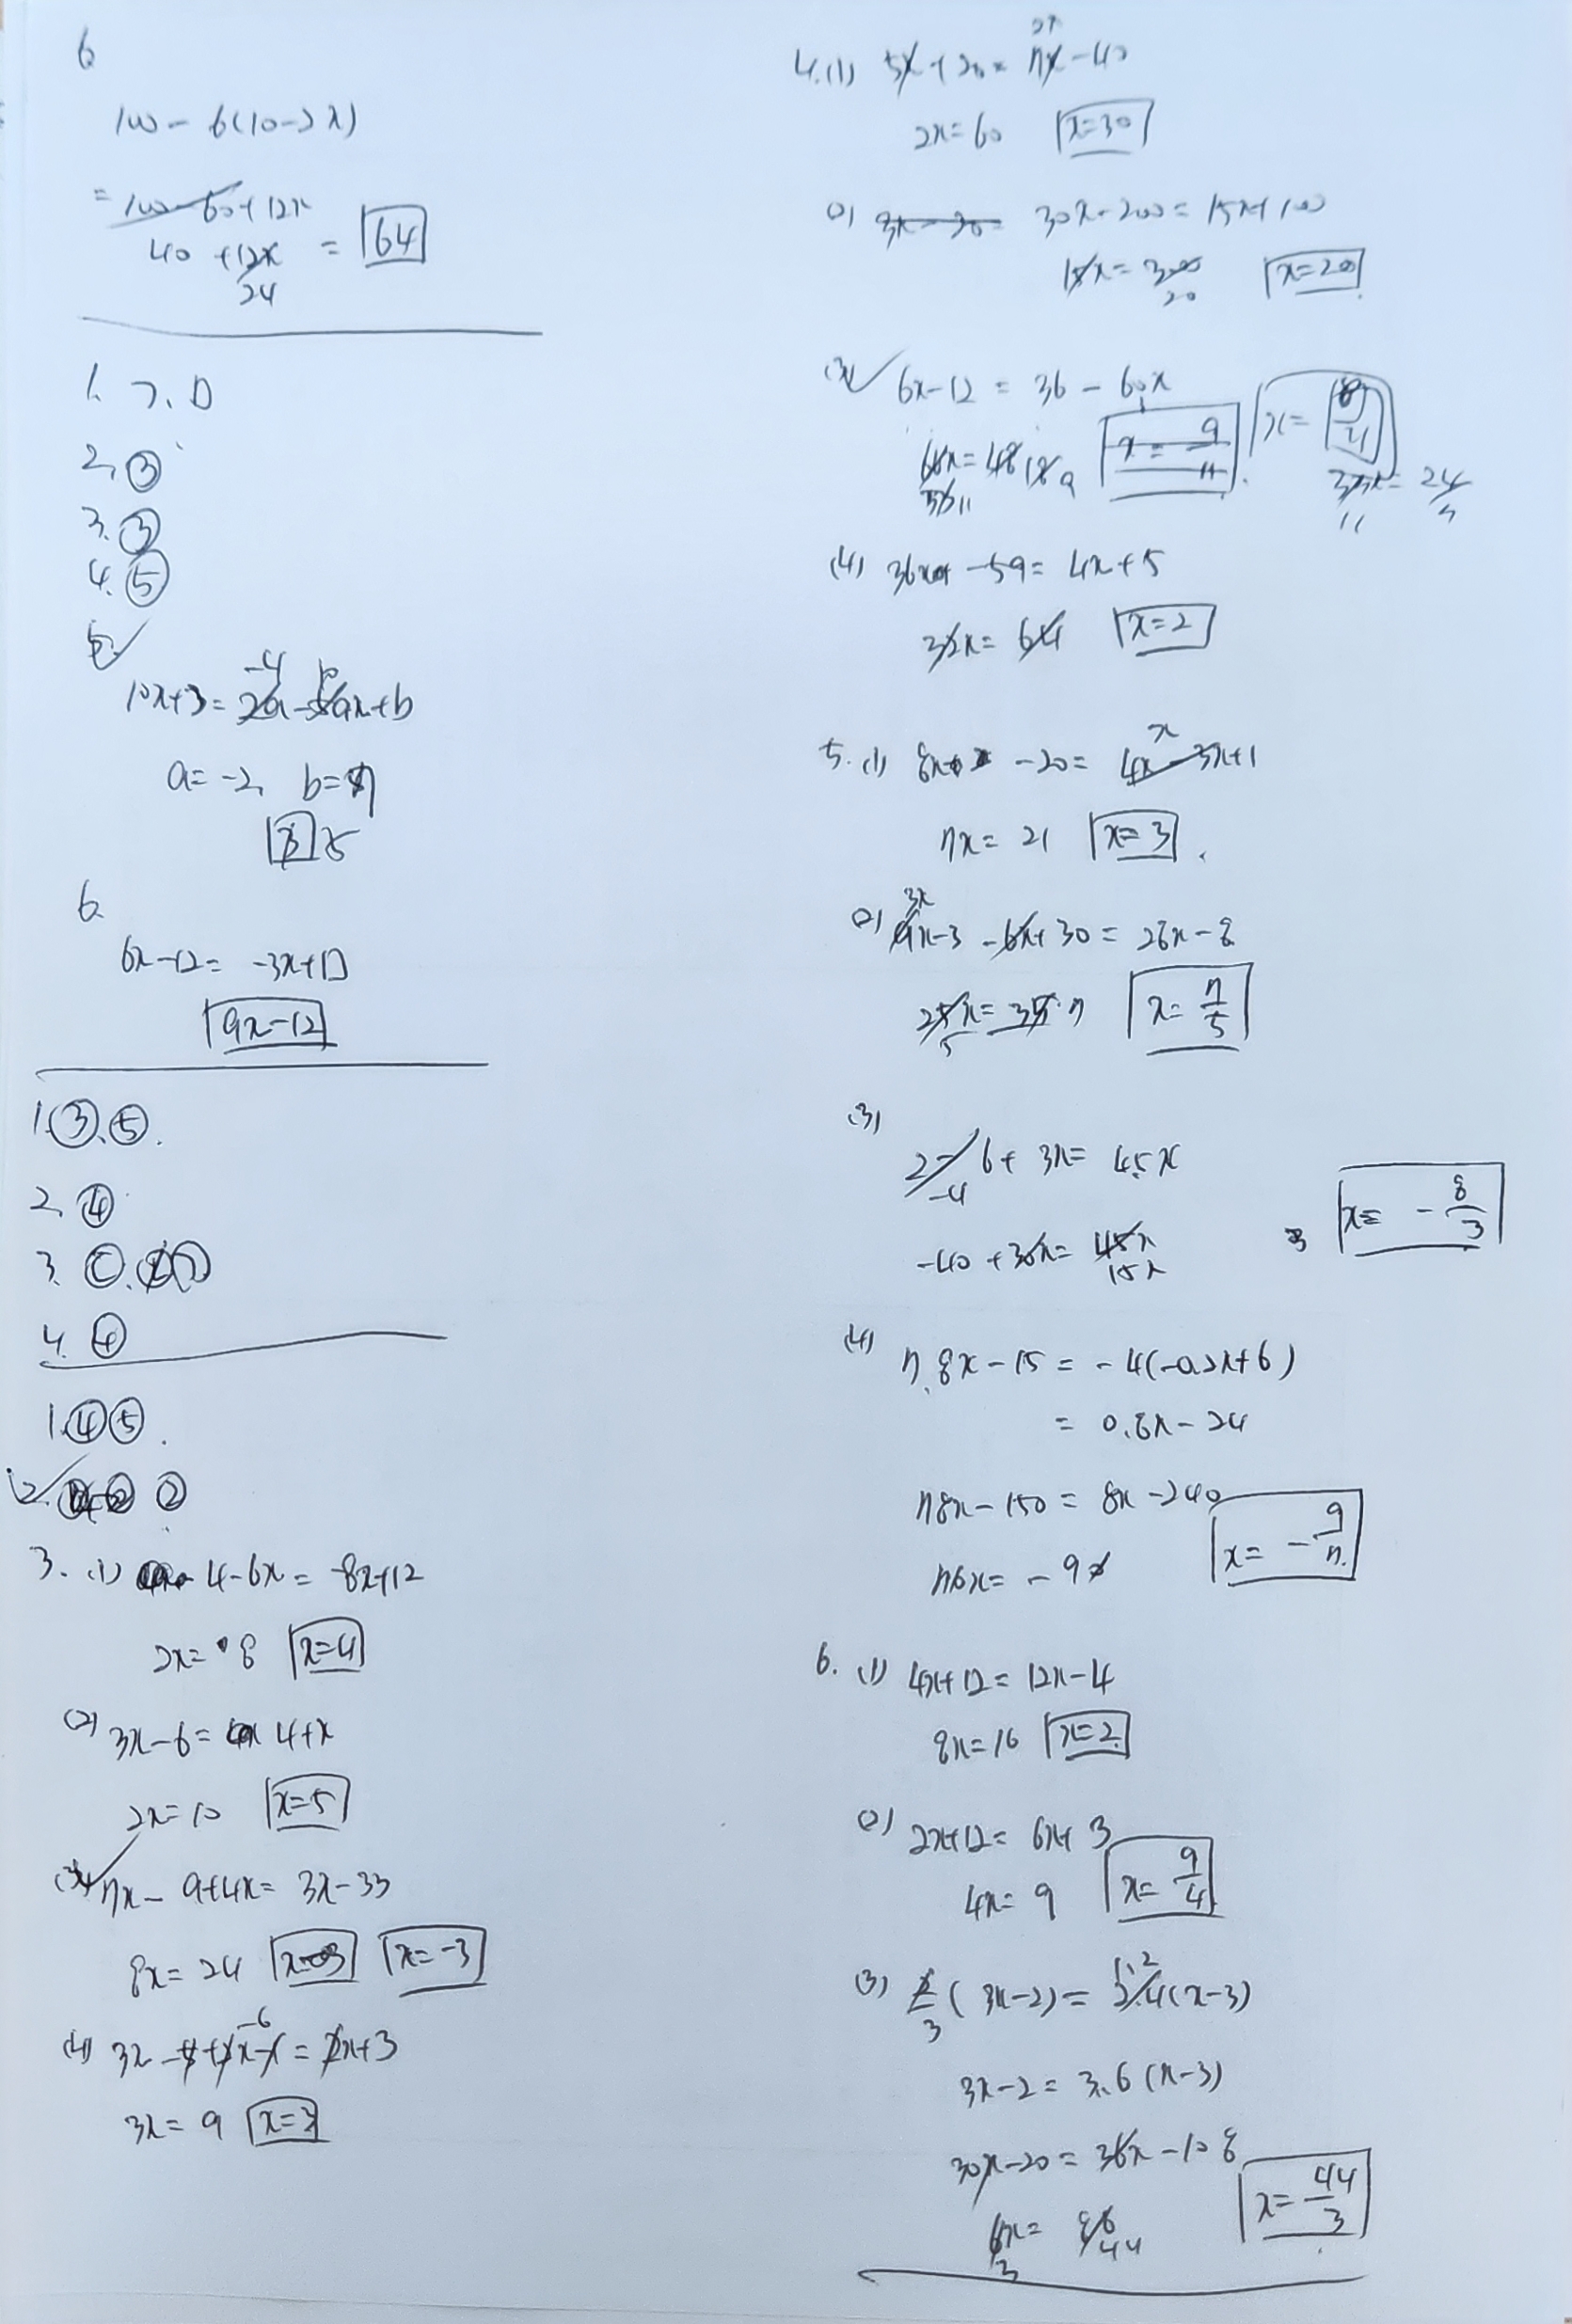 6
100 - 6(10-2x)
= 100-60+12x
40 +12x = 64
24
1. ㄱ, ㅁ
2. ③
3. ③
4. ⑤
5.
10x+3 = 2a-5ax+b
-4
a=-2, b=7
5
6.
6x-12 = -3x+□
9x-12
1. ③, ⑤.
2. ④
3. ㄷ
4. ④
1. ④ ⑤.
2. ②
3. (1) 4-6x = -8x+12
2x = 8 x=4
(2) 3x-6 = 4+x
2x=10 x=5
(3) 7x-9+4x = 3x-33
8x = 24 x=-3
(4) 3x-4+2x-2 = 2x+3
-6
3x = 9 x=3
4. (1) 5x+20 = 7x-40
2x
2x=60 x=30
(2) 3x-20= 30x-200 = 15x+100
15x = 300 x=20
20
(3) 6x-12 = 36-60x
66x=48 18 9 x=9/11 x=8/11
33 11
33x = 24
11
(4) 36x -59 = 4x+5
32x = 64 x=2
5. (1) 8x -20 = 4x-3x+1
x
7x = 21 x=3.
(2) 9x-3-6x+30 = 28x-8
3x
25x = 35 7 x=7/5
5
(3)
2-6+3x = 4.5x
-4
-40+30x = 45x x=-8/3
15x
(4) 7.8x-15 = -4(-0.2x+6)
= 0.8x-24
78x-150 = 8x-240
x = -9/7
6. (1) 4x+12 = 12x-4
8x=16 x=2
(2) 2x+12 = 6x+3
4x = 9 x=9/4
(3) 2/3 (3x-2) = 2.4(x-3)
1.2
3x-2 = 3.6(x-3)
30x-20 = 36x-108
6x = 88 x=44/3
3 44